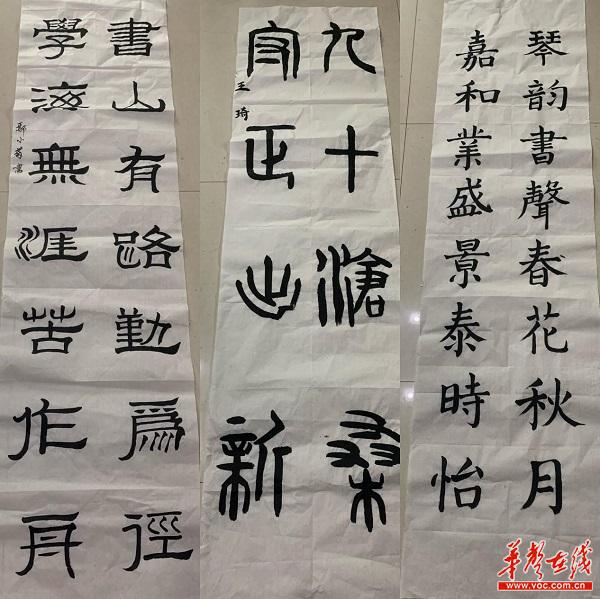 書山有路勤爲徑
學海無涯苦作舟
九十滄桑
守正出新
王琦
琴韵書聲春花秋月
嘉和業盛景泰時怡
華聲在线
www.voc.com.cn